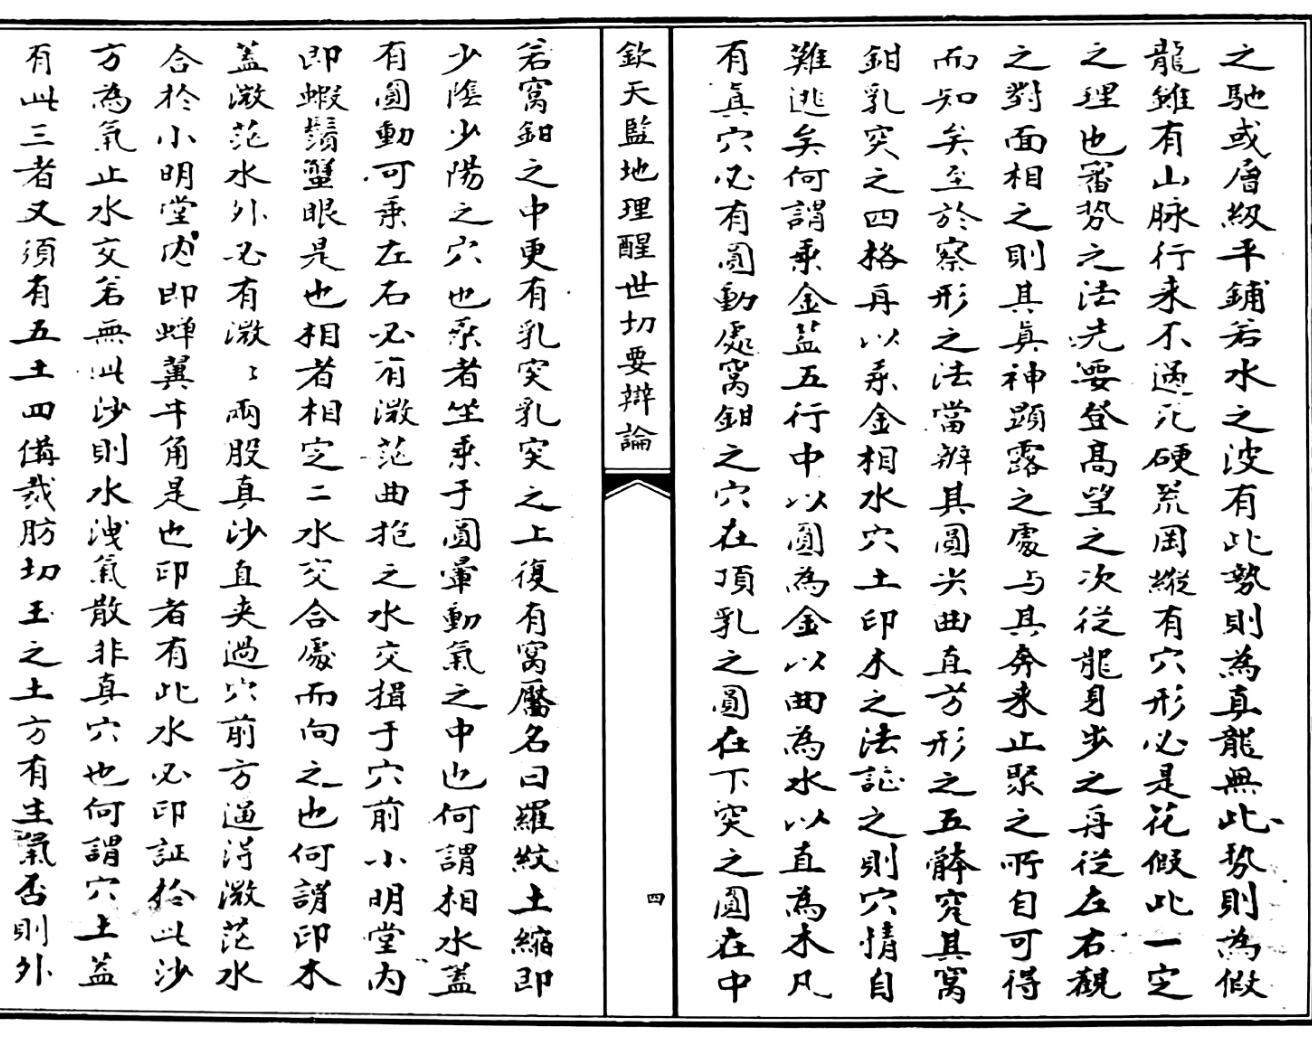 之馳或層級平鋪若水之波有此勢則為真龍無此勢則為假
龍雖有山脉行来不過死硬荒岡縱有穴形必是花假此一定
之理也審势之法先要登高望之次従龍身步之再従左右觀
之對面相之則其真神顕露之處与其奔来止聚之所自可得
而知矣至於察形之法當辨其圓尖曲直方形之五體究其窩
鉗乳突之四格再以乘金相水穴土印木之法証之則穴情自
難逃矣何謂乘金蓋五行中以圓為金以曲為水以直為木凡
有真穴必有圓動處窩鉗之穴在頂乳之圓在下突之圓在中
欽天監地理醒世切要辯論
四
若窩鉗之中更有乳突乳突之上復有窩靨名曰羅紋土縮即
少陰少陽之穴也乘者坐乘于圓暈動氣之中也何謂相水蓋
有圓動可乘左右必有微茫曲抱之水交揖于穴前小明堂内
即蝦鬚蟹眼是也相者相定二水交合處而向之也何謂印木
蓋微茫水外必有微〻兩股真沙直夹過穴前方逼得微茫水
合於小明堂内即蝉翼牛角是也印者有此水必印証於此沙
方為氣止水交若無此沙則水洩氣散非真穴也何謂穴土蓋
有此三者又須有五土四備裁肪切玉之土方有生氣否則外